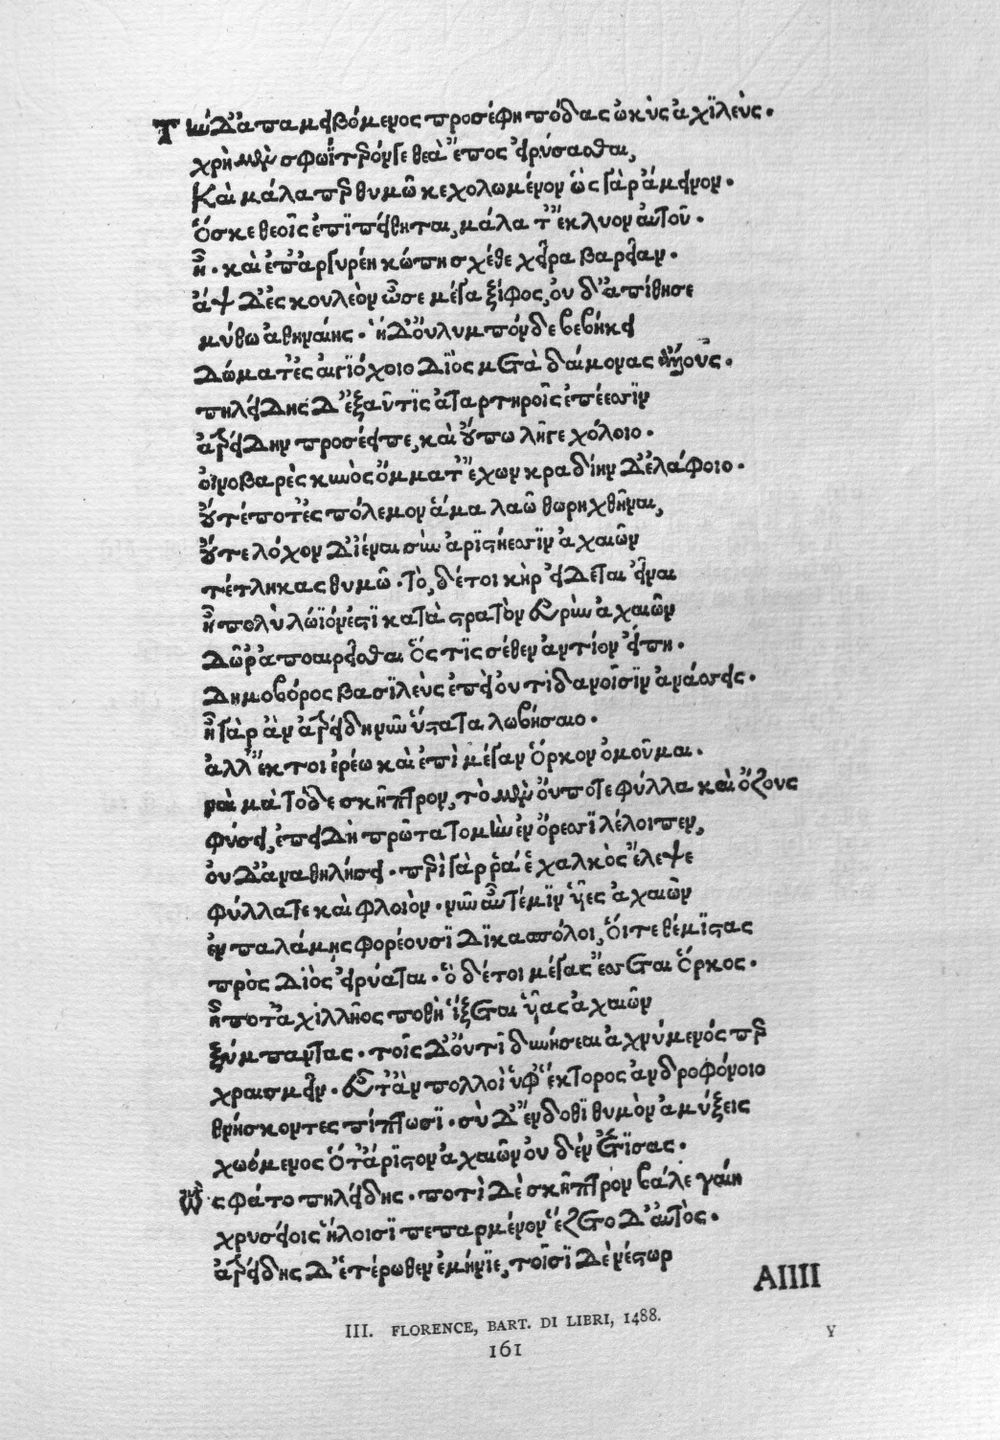 Τὴν δ' ἀπαμειβόμενος προσέφη πόδας ὠκὺς ἀχϊλεύς.
χρὴ μὲν σφωΐτερόν γε θεὰ ἔπος εἰρύσασθαι,
Καὶ μάλα περ θυμῶ κεχολωμένον ὣς γὰρ ἄμεινον.
Ὅς κε θεοῖς ἐπϊπείθηται, μάλα τ' ἔκλυον αὐτοῦ.
ἦ. καὶ ἐπ' ἀργυρέη κώπη σχέθε χεῖρα βαρεῖαν.
ἂψ δ' ἐς κουλεὸν ὦσε μέγα ξίφος, οὐ δ' ἀπίθησε
μύθω ἀθηναίης. ἡ δ' οὔλυμπόνδε βεβήκει
Δώματ' ἐς αἰγϊόχοιο Δϊὸς μετὰ δαίμονας ἄλλους.
πηλείδης δ' ἐξαῦτϊς ἀταρτηροῖς ἐπέεσσϊν
ἀτρείδην προσέειπε, καὶ οὔπω λῆγε χόλοιο.
οἰνοβαρὲς κυνὸς ὄμματ' ἔχων κραδίην δ' ἐλάφοιο.
οὔτέ ποτ' ἐς πόλεμον ἅμα λαῶ θωρηχθῆναι,
οὔτε λόχον δ' ἰέναι σὺν ἀρϊστήεσσϊν ἀχαιῶν
τέτληκας θυμῶ. τὸ, δέ τοι κὴρ εἴδεται εἶναι
ἦ πολὺ λώϊόν ἐστϊ κατὰ στρατὸν εὐρὺν ἀχαιῶν
Δῶρ' ἀποαιρεῖσθαι ὅς τϊς σέθεν ἀντίον εἴπη.
Δημοβόρος βασϊλεὺς ἐπεὶ οὐτιδανοῖσϊν ἀνάσσεις.
ἦ γὰρ ἂν ἀτρείδη νῦν ὕστατα λωβήσαιο.
ἀλλ' ἔκ τοι ἐρέω καὶ ἐπὶ μέγαν ὅρκον ὀμοῦμαι.
ναὶ μὰ τόδε σκῆπτρον, τὸ μὲν οὔποτε φύλλα καὶ ὄζους
φύσει, ἐπειδὴ πρῶτα τομὴν ἐν ὄρεσσϊ λέλοιπεν,
οὐ δ' ἀναθηλήσει. περὶ γὰρ ῥά ἑ χαλκὸς ἔλεψε
φύλλα τε καὶ φλοιόν. νῦν αὖτέ μϊν υἷες ἀχαιῶν
ἐν παλάμης φορέουσϊ Δϊκασπόλοι, οἵ τε θέμϊστας
πρὸς Δϊὸς εἰρύαται. ὁ δέ τοι μέγας ἔσσεται ὅρκος.
ἦ ποτ' ἀχιλλῆος ποθὴ ἵξεται υἷας ἀχαιῶν
ξύμπαντας. τοῖς δ' οὔ τι δυνήσεαι ἀχνύμενός περ
χραισμεῖν. εὖτ' ἂν πολλοὶ ὑφ' ἕκτορος ἀνδροφόνοιο
θνήσκοντες πίπτωσϊ. σὺ δ' ἔνδοθϊ θυμὸν ἀμύξεις
χωόμενος ὅτ' ἄρϊστον ἀχαιῶν οὐ δὲν ἔτϊσας.
Ὣς φάτο πηλείδης. ποτὶ δὲ σκῆπτρον βάλε γαίη
χρυσείοις ἥλοισϊ πεπαρμένον ἕζετο δ' αὐτός.
ἀτρείδης δ' ἑτέρωθεν ἐμήνϊε, τοῖσϊ δὲ νέστωρ
AIIII
III. FLORENCE, BART. DI LIBRI, 1488.
161
Y